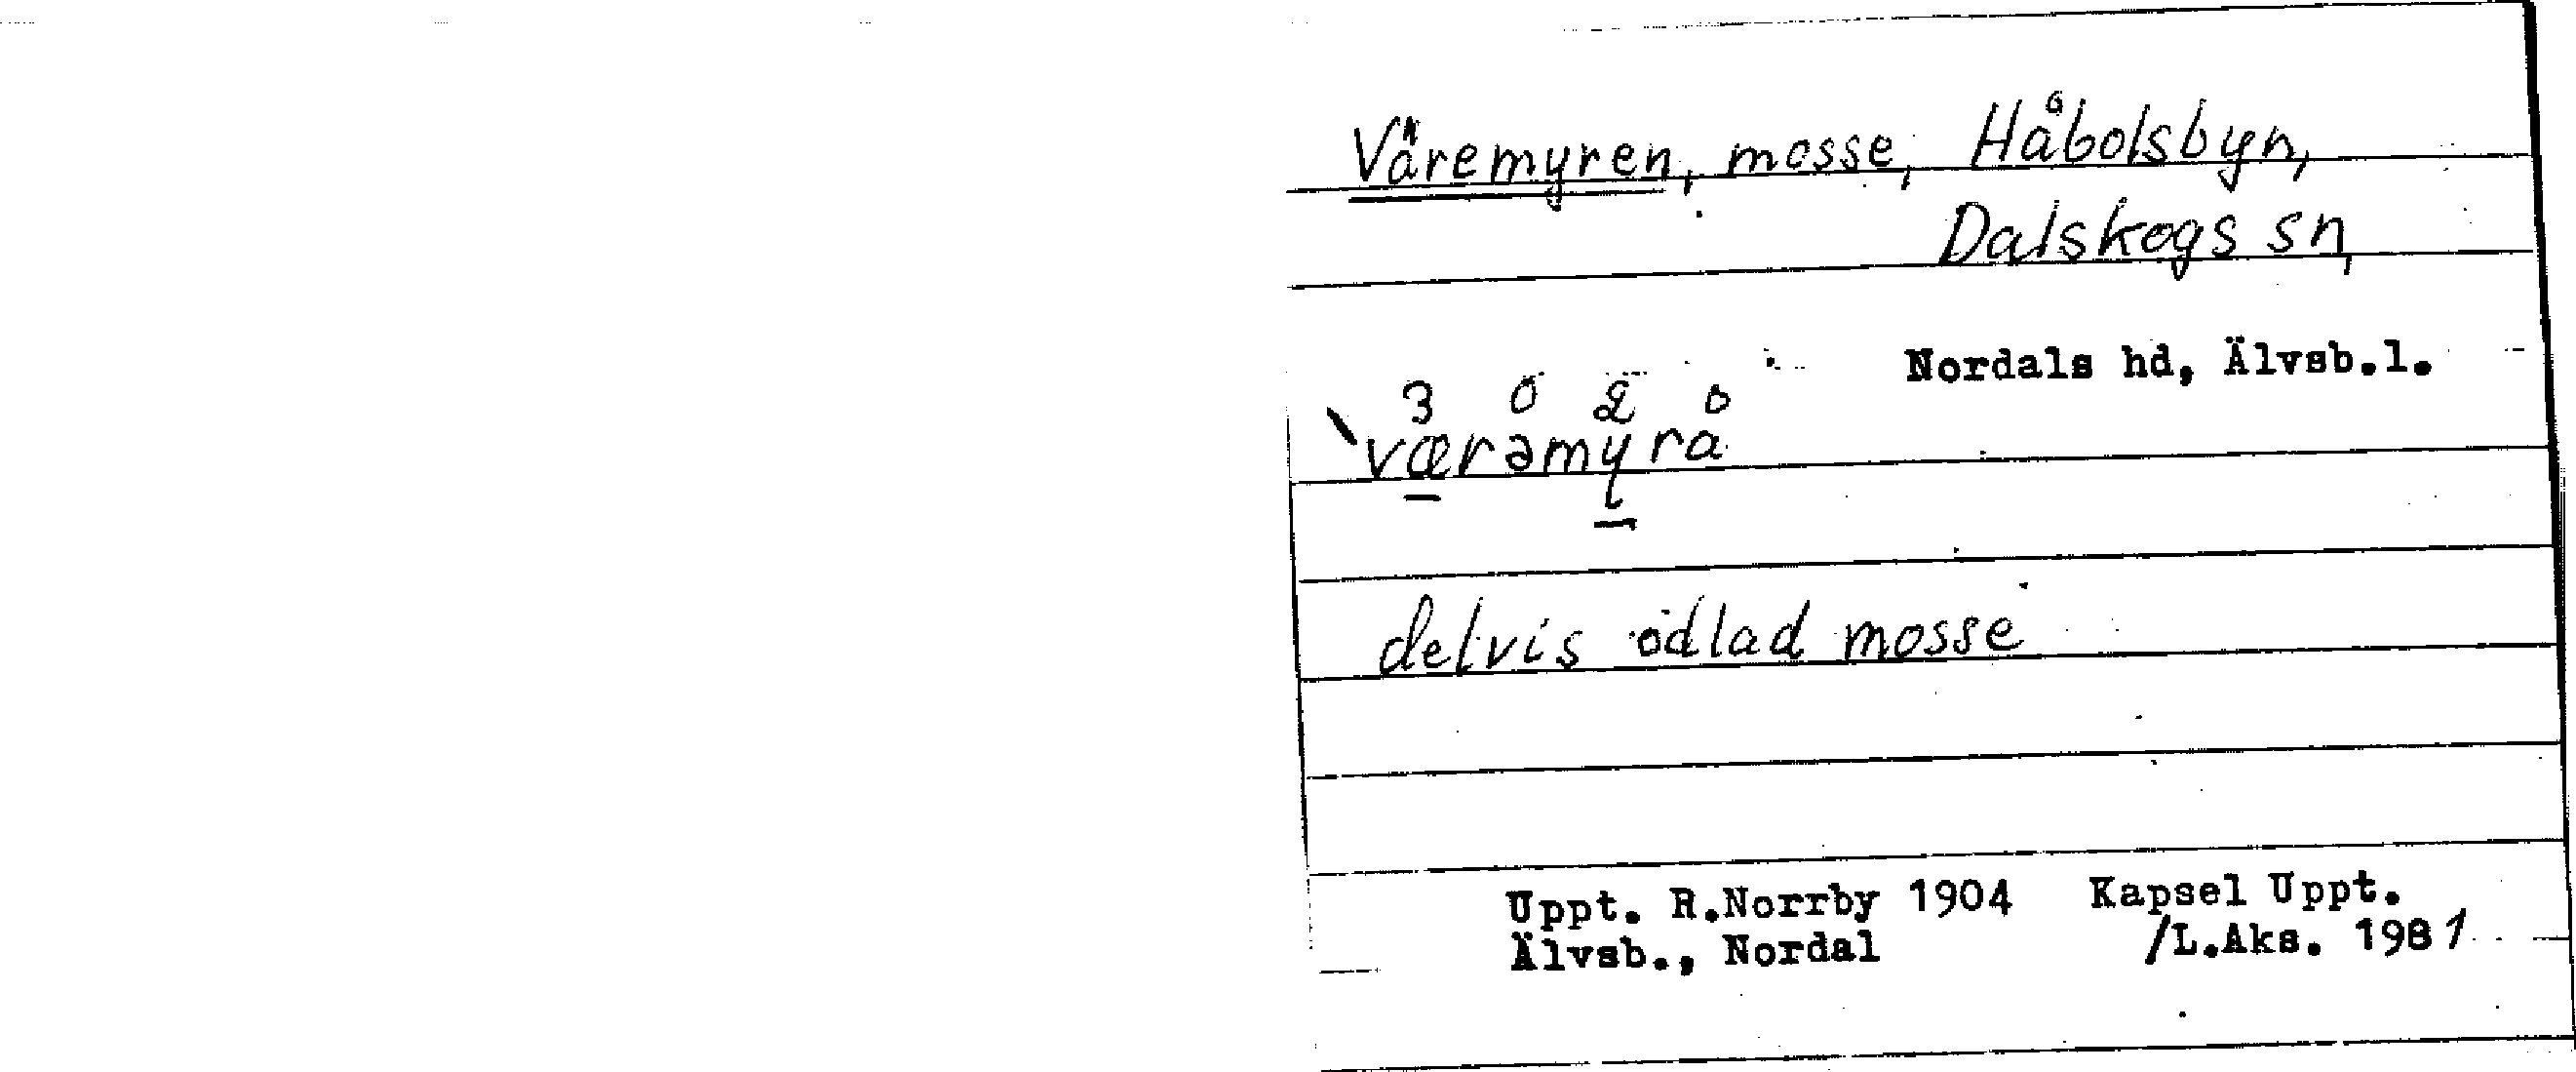 Väremyren, mosse, Håbolsbyn,
Dalskogs sn,
Nordals hd, Älvsb.l.
3 0 2 0
`værəmyra
delvis odlad mosse
Uppt. R.Norrby 1904 Kapsel Uppt.
Älvsb., Nordal /L.Aks. 1981